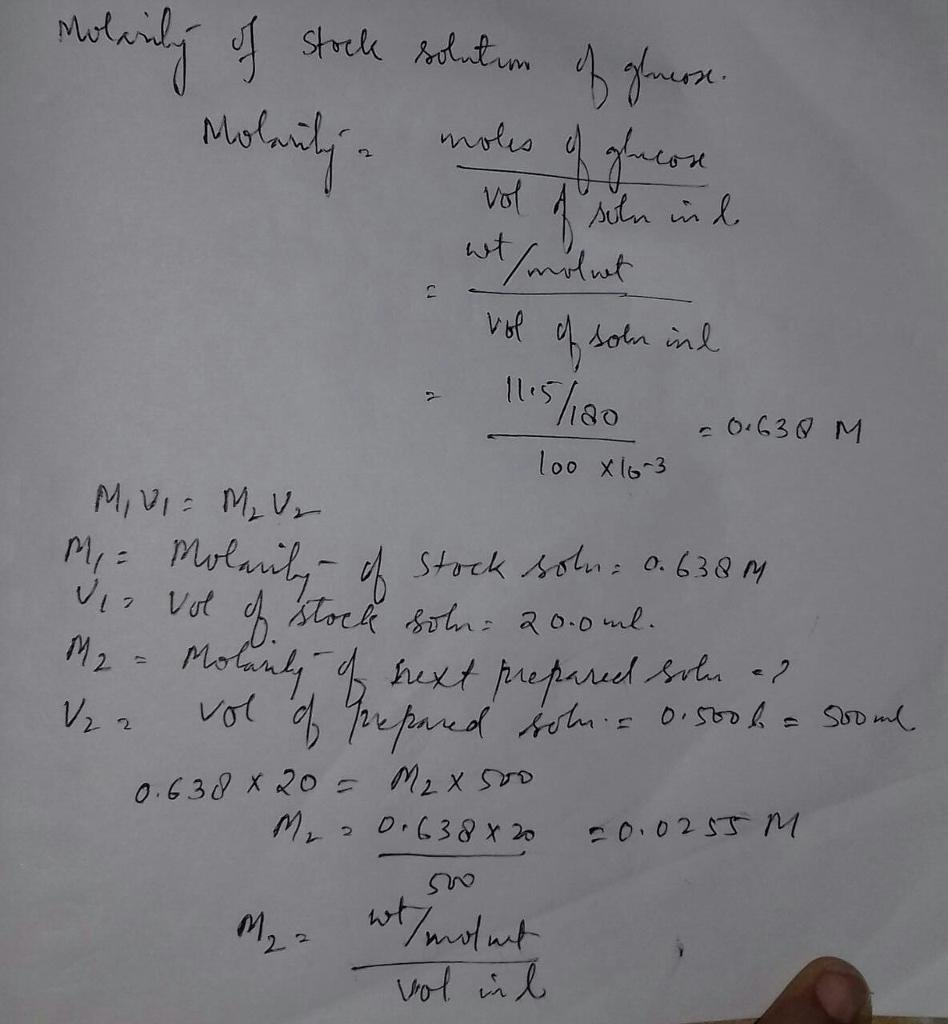 Molarity of stock solution of glucose.
Molarity = moles of glucose
vol of soln in l
= wt/molwt
vol of soln in l
= 11.5/180 = 0.638 M
100 x10-3
M1V1 = M2V2
M1 = Molarity of stock soln = 0.638 M
V1 = Vol of stock soln = 20.0 ml.
M2 = Molarity of next prepared soln = ?
V2 = vol of prepared soln. = 0.500 l = 500 ml
0.638 x 20 = M2 x 500
M2 = 0.638 x 20 = 0.0255 M
500
M2 = wt/molwt
vol in l